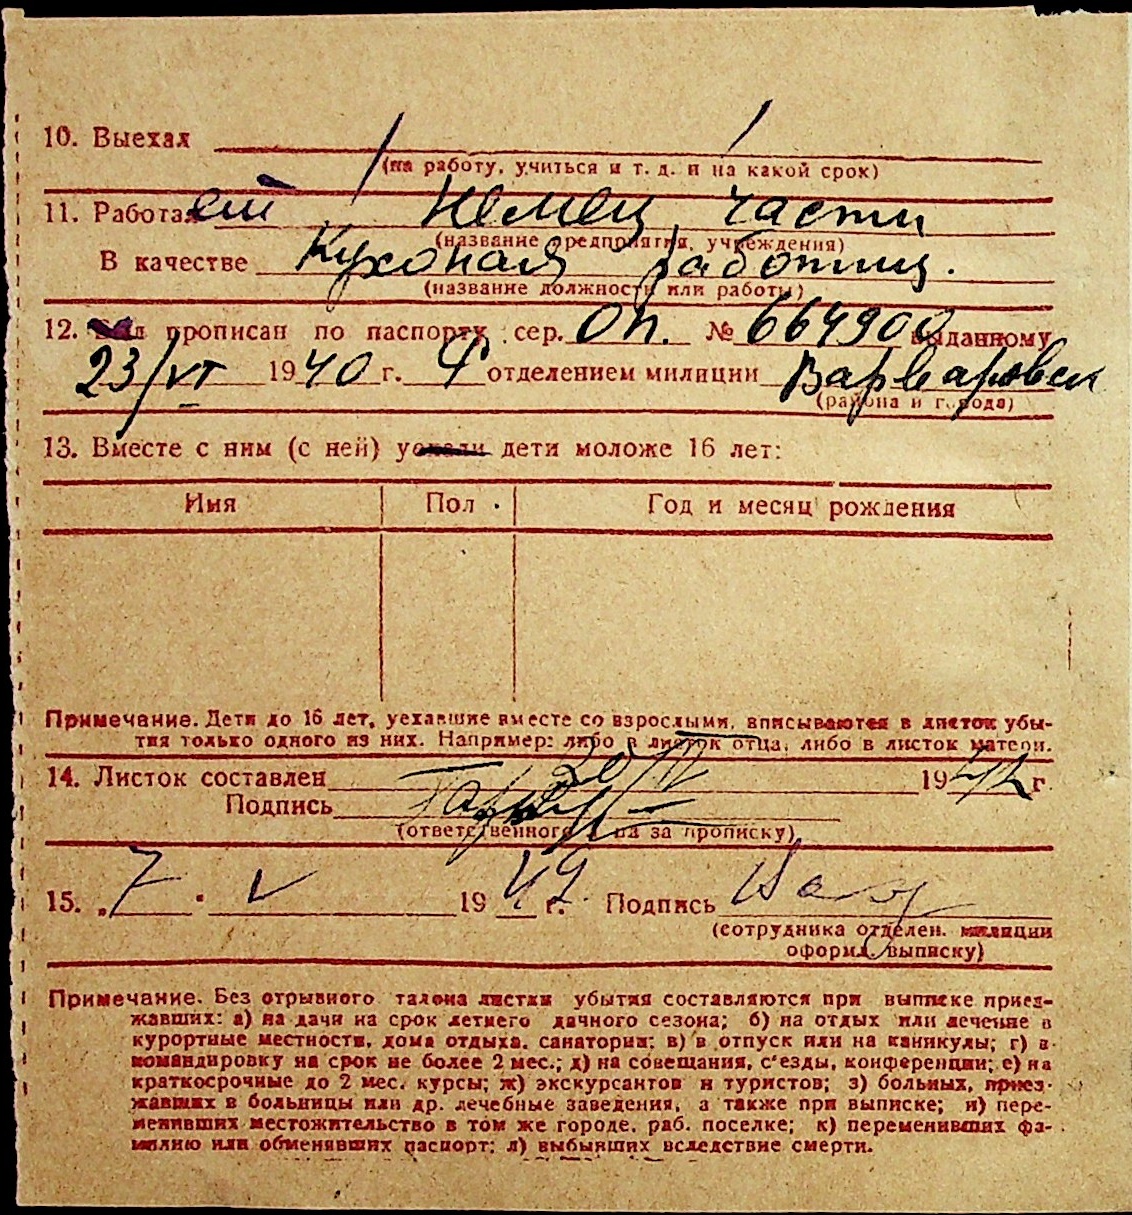 10. Выехал
(на работу, учиться и т. д. и на какой срок)
11. Работает Немец части
(название предприятия, учреждения)
В качестве Кухоная работниц.
(название должности или работы)
12. прописан по паспорту сер. ОП. № 664900 выданному
23/VI 1940 г. отделением милиции Варваровск
(района и города)
13. Вместе с ним (с ней) уехали дети моложе 16 лет:
Имя Пол Год и месяц рождения
Примечание. Дети до 16 лет, уехавшие вместе со взрослыми, вписываются в листок убы-
тия только одного из них. Например: либо в листок отца, либо в листок матери.
14. Листок составлен 20/IV 1942 г.
Подпись
(ответственного лица за прописку)
15. „7" V 1942 г. Подпись
(сотрудника отделен. милиции
оформл. выписку)
Примечание. Без отрывного талона листки убытия составляются при выписке приез-
жавших: а) на дачи на срок летнего дачного сезона; б) на отдых или лечение в
курортные местности, дома отдыха, санатории; в) в отпуск или на каникулы; г) в
командировку на срок не более 2 мес.; д) на совещания, с'езды, конференции; е) на
краткосрочные до 2 мес. курсы; ж) экскурсантов и туристов; з) больных, приез-
жавших в больницы или др. лечебные заведения, а также при выписке; и) пере-
менивших местожительство в том же городе, раб. поселке; к) переменивших фа-
милию или обменявших паспорт; л) выбывших вследствие смерти.